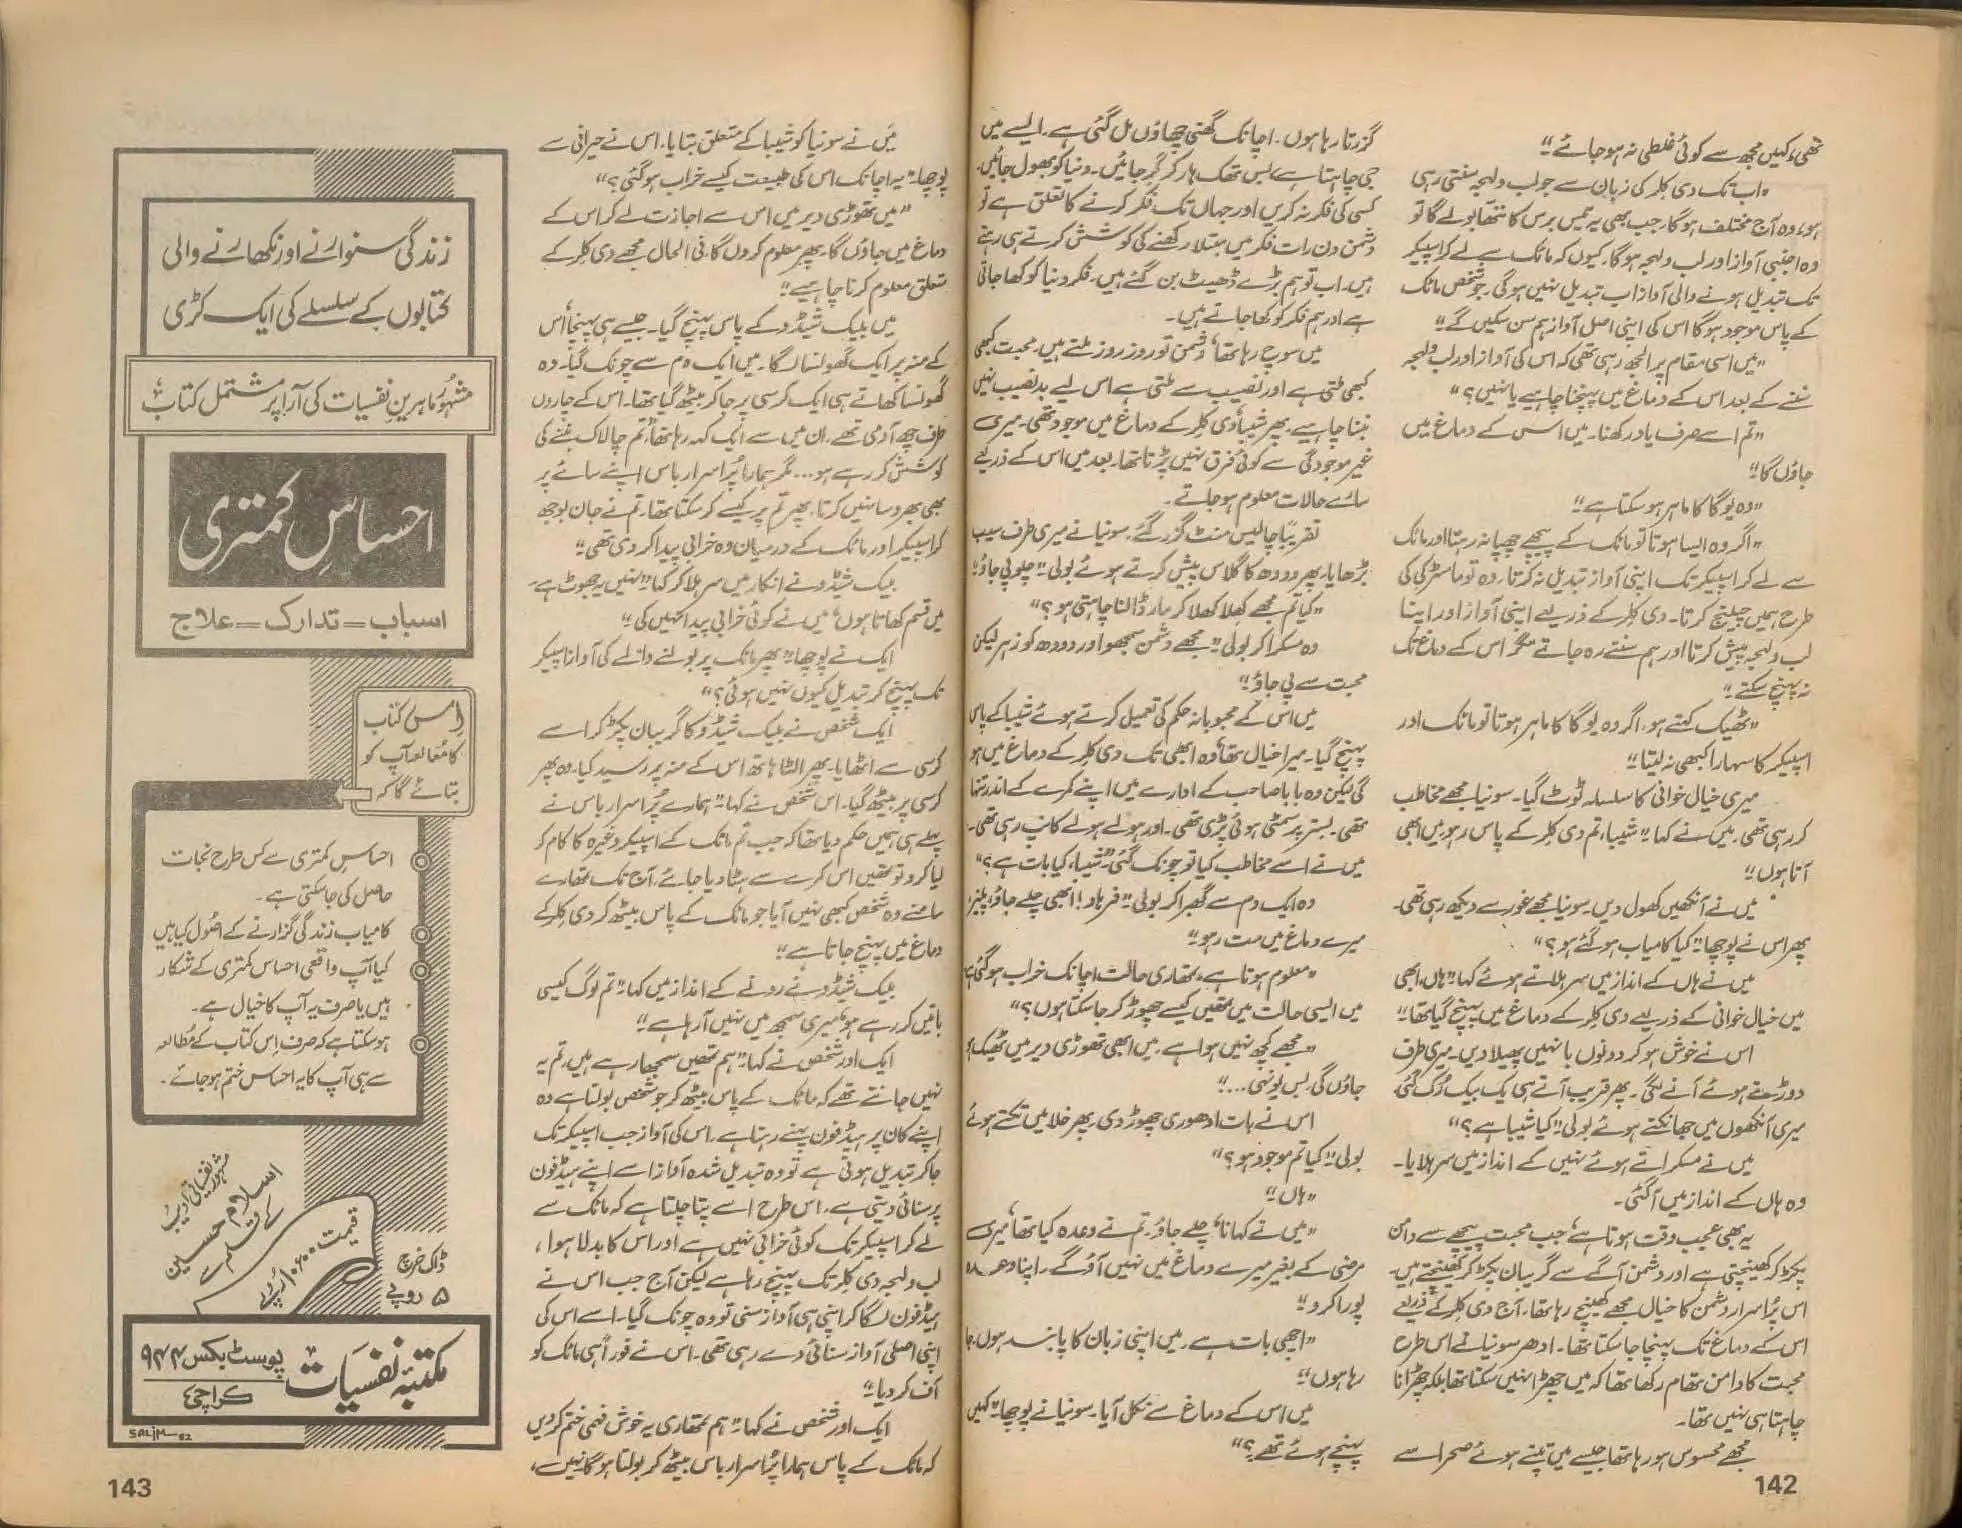 تھی، کہیں مجھ سے کوئی غلطی نہ ہو جائے“
”اب تک دی کلر کی زبان سے جو لب و لہجہ سنتی رہی
ہو، وہ آج مختلف ہوگا۔ جب بھی یہ تیس برس کا ننھا بولے گا تو
وہ اجنبی آواز اور لب و لہجہ ہوگا۔ کیوں کہ مائک سے لے کر اسپیکر
تک تبدیل ہونے والی آواز اب تبدیل نہیں ہوگی۔ جو شخص مائک
کے پاس موجود ہوگا اس کی اپنی اصل آواز ہم سن سکیں گے“
”میں اسی مقام پر الجھ رہی تھی کہ اس کی آواز اور لب و لہجہ
سننے کے بعد اس کے دماغ میں پہنچنا چاہیے یا نہیں؟“
”تم اسے صرف یاد رکھنا۔ میں اس کے دماغ میں
جاؤں گا“
”وہ یوگا کا ماہر ہو سکتا ہے“
”اگر وہ ایسا ہوتا تو مائک کے پیچھے چھپا نہ رہتا اور مائک
سے لے کر اسپیکر تک اپنی آواز تبدیل نہ کرتا۔ وہ تو ماسٹر کی کی
طرح ہمیں چیلنج کرتا۔ دی کلر کے ذریعے اپنی آواز اور اپنا
لب و لہجہ پیش کرتا اور ہم سنتے رہ جاتے مگر اس کے دماغ تک
نہ پہنچ سکتے“
”ٹھیک کہتے ہو۔ اگر وہ یوگا کا ماہر ہوتا تو مائک اور
اسپیکر کا سہارا کبھی نہ لیتا“
میری خیال خوانی کا سلسلہ ٹوٹ گیا۔ سونیا مجھے مخاطب
کر رہی تھی۔ میں نے کہا ”شیبا، تم دی کلر کے پاس رہو، میں ابھی
آتا ہوں“
میں نے آنکھیں کھول دیں۔ سونیا مجھے غور سے دیکھ رہی تھی۔
پھر اس نے پوچھا ”کیا کامیاب ہو گئے ہو؟“
میں نے ہاں کے انداز میں سر ہلاتے ہوئے کہا ”ہاں، ابھی
میں خیال خوانی کے ذریعے دی کلر کے دماغ میں پہنچ گیا تھا“
اس نے خوش ہو کر دونوں بانہیں پھیلا دیں۔ میری طرف
دوڑتے ہوئے آنے لگی۔ پھر قریب آتے ہی یک بیک رک گئی۔
میری آنکھوں میں جھانکتے ہوئے بولی ”کیا شیبا ہے؟“
میں نے مسکراتے ہوئے نہیں کے انداز میں سر ہلایا۔
وہ ہاں کے انداز میں آ گئی۔
یہ بھی عجب وقت ہوتا ہے، جب محبت پیچھے سے دامن
پکڑ کر کھینچتی ہے اور دشمن آگے سے گریبان پکڑ کر کھینچتے ہیں۔
اس پراسرار دشمن کا خیال مجھے کھینچ رہا تھا۔ آج دی کلر کے ذریعے
اس کے دماغ تک پہنچا جا سکتا تھا۔ ادھر سونیا نے اس طرح
محبت کا دامن تھام رکھا تھا کہ میں چھڑا نہیں سکتا تھا بلکہ چھڑانا
چاہتا ہی نہیں تھا۔
مجھے محسوس ہو رہا تھا جیسے میں تپتے ہوئے صحرا سے
142
گزرتا رہا ہوں۔ اچانک گھنی چھاؤں مل گئی ہے۔ ایسے میں
جی چاہتا ہے، بس تھک ہار کر گر جائیں۔ دنیا کو بھول جائیں۔
کسی کی فکر نہ کریں اور جہاں تک فکر کرنے کا تعلق ہے تو
دشمن دن رات فکر میں مبتلا رکھنے کی کوشش کرتے ہی رہتے
ہیں۔ اب تو ہم بڑے ڈھیٹ بن گئے ہیں۔ فکر دنیا کو کھا جاتی
ہے اور ہم فکر کو کھا جاتے ہیں۔
میں سوچ رہا تھا، دشمن تو روز روز ملتے ہیں۔ محبت کبھی
کبھی ملتی ہے اور نصیب سے ملتی ہے اس لیے بدنصیب نہیں
بننا چاہیے۔ پھر شیبا، دی کلر کے دماغ میں موجود تھی۔ میری
غیر موجودگی سے کوئی فرق نہیں پڑتا تھا۔ بعد میں اس کے ذریعے
سارے حالات معلوم ہو جاتے۔
تقریباً چالیس منٹ گزر گئے۔ سونیا نے میری طرف سیب
بڑھایا، پھر دودھ کا گلاس پیش کرتے ہوئے بولی ”چلو پی جاؤ“
”کیا تم مجھے کھلا کھلا کر مار ڈالنا چاہتی ہو؟“
وہ مسکرا کر بولی ”مجھے دشمن سمجھو اور دودھ کو زہر لیکن
محبت سے پی جاؤ“
میں اس کے محبوبانہ حکم کی تعمیل کرتے ہوئے شیبا کے پاس
پہنچ گیا۔ میرا خیال تھا، وہ ابھی تک دی کلر کے دماغ میں ہو
گی لیکن وہ بابا صاحب کے ادارے میں اپنے کمرے کے اندر تنہا
تھی۔ بستر پر سمٹی ہوئی پڑی تھی۔ اور ہولے ہولے کانپ رہی تھی۔
میں نے اسے مخاطب کیا تو چونک گئی ”شیبا، کیا بات ہے؟“
وہ ایک دم سے گھبرا کر بولی ”فرہاد! ابھی چلے جاؤ، پلیز
میرے دماغ میں مت رہو“
”معلوم ہوتا ہے، تمھاری حالت اچانک خراب ہو گئی ہے
میں ایسی حالت میں تمھیں کیسے چھوڑ کر جا سکتا ہوں؟“
”مجھے کچھ نہیں ہوا ہے۔ میں ابھی تھوڑی دیر میں ٹھیک ہو
جاؤں گی۔ بس یونہی ...“
اس نے بات ادھوری چھوڑ دی۔ پھر خلا میں تکتے ہوئے
بولی ”کیا تم موجود ہو؟“
”ہاں“
”میں نے کہا نا، چلے جاؤ۔ تم نے وعدہ کیا تھا، میری
مرضی کے بغیر میرے دماغ میں نہیں آؤ گے۔ اپنا وعدہ
پورا کرو“
”اچھی بات ہے۔ میں اپنی زبان کا پابند ہوں۔ جا
رہا ہوں“
میں اس کے دماغ سے نکل آیا۔ سونیا نے پوچھا ”کہیں
پہنچے ہوئے تھے؟“
میں نے سونیا کو شیبا کے متعلق بتایا۔ اس نے حیرانی سے
پوچھا ”یہ اچانک اس کی طبیعت کیسے خراب ہو گئی؟“
”میں تھوڑی دیر میں اس سے اجازت لے کر اس کے
دماغ میں جاؤں گا۔ پھر معلوم کروں گا، فی الحال مجھے دی کلر کے
متعلق معلوم کرنا چاہیے“
میں بلیک شیڈو کے پاس پہنچ گیا۔ جیسے ہی پہنچا، اس
کے منہ پر ایک گھونسا لگا۔ میں ایک دم سے چونک گیا۔ وہ
گھونسا کھاتے ہی ایک کرسی پر جا کر بیٹھ گیا تھا۔ اس کے چاروں
طرف چھ آدمی تھے۔ ان میں سے ایک کہہ رہا تھا ”تم چالاک بننے کی
کوشش کر رہے ہو... مگر ہمارا پُراسرار باس اپنے سائے پر
بھی بھروسا نہیں کرتا، پھر تم پر کیسے کر سکتا تھا۔ تم نے جان بوجھ
کر اسپیکر اور مائک کے درمیان وہ خرابی پیدا کر دی تھی“
بلیک شیڈو نے انکار میں سر ہلا کر کہا ”نہیں یہ جھوٹ ہے۔
میں قسم کھاتا ہوں، میں نے کوئی خرابی پیدا نہیں کی“
ایک نے پوچھا ”پھر مائک پر بولنے والے کی آواز اسپیکر
تک پہنچ کر تبدیل کیوں نہیں ہوئی؟“
ایک شخص نے بلیک شیڈو کا گریبان پکڑ کر اسے
کرسی سے اٹھایا۔ پھر الٹا ہاتھ اس کے منہ پر رسید کیا۔ وہ پھر
کرسی پر بیٹھ گیا۔ اس شخص نے کہا ”ہمارے پُراسرار باس نے
پہلے ہی ہمیں حکم دیا تھا کہ جب تم مائک کے اسپیکر وغیرہ کا کام کر
لیا کرو تو تمھیں اس کمرے سے ہٹا دیا جائے۔ آج تک تمھارے
سامنے وہ شخص کبھی نہیں آیا جو مائک کے پاس بیٹھ کر دی کلر کے
دماغ میں پہنچ جاتا ہے“
بلیک شیڈو نے رونے کے انداز میں کہا ”تم لوگ کیسی
باتیں کر رہے ہو، میری سمجھ میں نہیں آ رہا ہے“
ایک اور شخص نے کہا ”ہم تمھیں سمجھا رہے ہیں۔ تم یہ
نہیں جانتے تھے کہ مائک کے پاس بیٹھ کر جو شخص بولتا ہے وہ
اپنے کان پر ہیڈ فون پہنے رہتا ہے۔ اس کی آواز جب اسپیکر تک
جا کر تبدیل ہوتی ہے تو وہ تبدیل شدہ آواز اسے اپنے ہیڈ فون
پر سنائی دیتی ہے۔ اس طرح اسے پتا چلتا ہے کہ مائک سے
لے کر اسپیکر تک کوئی خرابی نہیں ہے اور اس کا بدلا ہوا،
لب و لہجہ دی کلر تک پہنچ رہا ہے لیکن آج جب اس نے
ہیڈ فون لگا کر اپنی ہی آواز سنی تو وہ چونک گیا۔ اسے اس کی
اپنی اصلی آواز سنائی دے رہی تھی۔ اس نے فوراً ہی مائک کو
آف کر دیا“
ایک اور شخص نے کہا ”ہم تمھاری یہ خوش فہمی ختم کر دیں
کہ مائک کے پاس ہمارا پُراسرار باس بیٹھ کر بولتا ہوگا۔ نہیں،
زندگی سنوارنے اور نکھارنے والی
کتابوں کے سلسلے کی ایک کڑی
مشہور ماہرینِ نفسیات کی آرا پر مشتمل کتاب
احساسِ کمتری
اسباب = تدارک = علاج
اِس کتاب
کا مُطالعہ آپ کو
بتائے گا کہ
احساسِ کمتری سے کس طرح نجات
حاصل کی جا سکتی ہے۔
کامیاب زندگی گزارنے کے اصُول کیا ہیں
کیا آپ واقعی احساسِ کمتری کے شکار
ہیں یا صرف یہ آپ کا خیال ہے۔
ہو سکتا ہے کہ صرف اِس کتاب کے مُطالعہ
سے ہی آپ کا یہ احساس ختم ہو جائے۔
مشہور نفسیاتی ادیب
اسلام حسین
کے قلم سے
قیمت ۱۰/۰۰ روپے
ڈاک خرچ
۵ روپے
مکتبۂ نفسیات
پوسٹ بکس ۹۴۴
کراچی ۱
SALIM-82
143